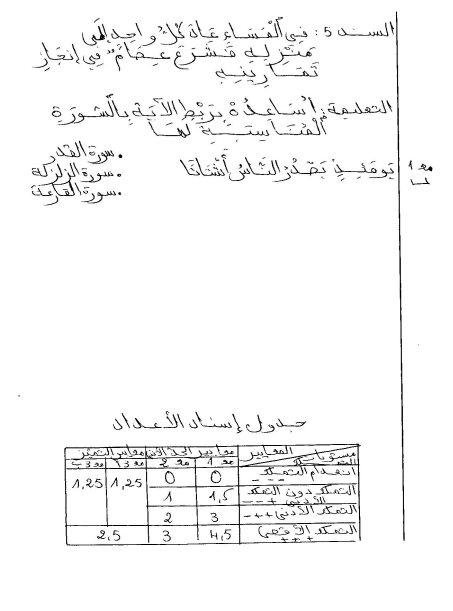 السند 5: في المساء عاد كل واحد إلى
منزله فشرع عصام في إنجاز
تمارينه
التعليمة: أساعده بربط الآية بالسورة
المناسبة لها
مع 1
يومئذ يصدر الناس أشتاتا
. سورة القدر
. سورة الزلزلة
. سورة القارعة
جدول إسناد الأعداد
المعايير معايير الحد الأدنى معايير التميز
مستويات التملك مع 1 مع 2 مع 3 أ مع 3 ب
انعدام التملك - - - 0 0 1,25 1,25
التملك دون التملك الأدنى + - - 1,5 1
التملك الأدنى + + - 3 2
التملك الأقصى + + + 4,5 3 2,5